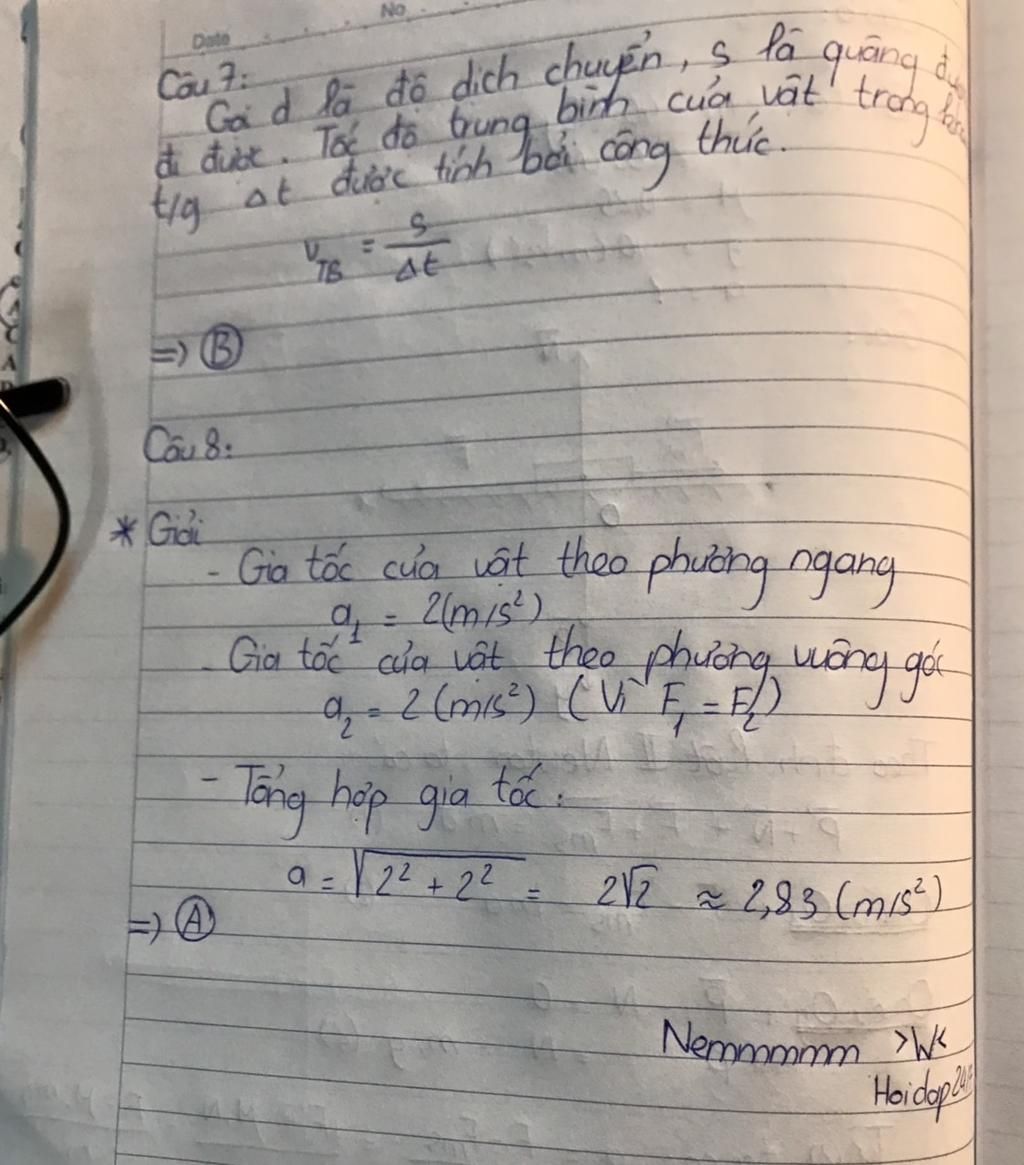 No
Date
Câu 7:
Gọi d là độ dịch chuyển, s là quãng
đi được. Tốc độ trung bình của vật trong
t/g Δt được tính bởi công thức.
v_TB = s/Δt
=> B
Câu 8:
* Giải
- Gia tốc của vật theo phương ngang
a₁ = 2(m/s²)
- Gia tốc của vật theo phương vuông góc
a₂ = 2(m/s²) (Vì F₁ = F₂)
- Tổng hợp gia tốc:
a = √(2² + 2²) = 2√2 ≈ 2,83 (m/s²)
=> A
Nemmmmm >W<
Hoidap